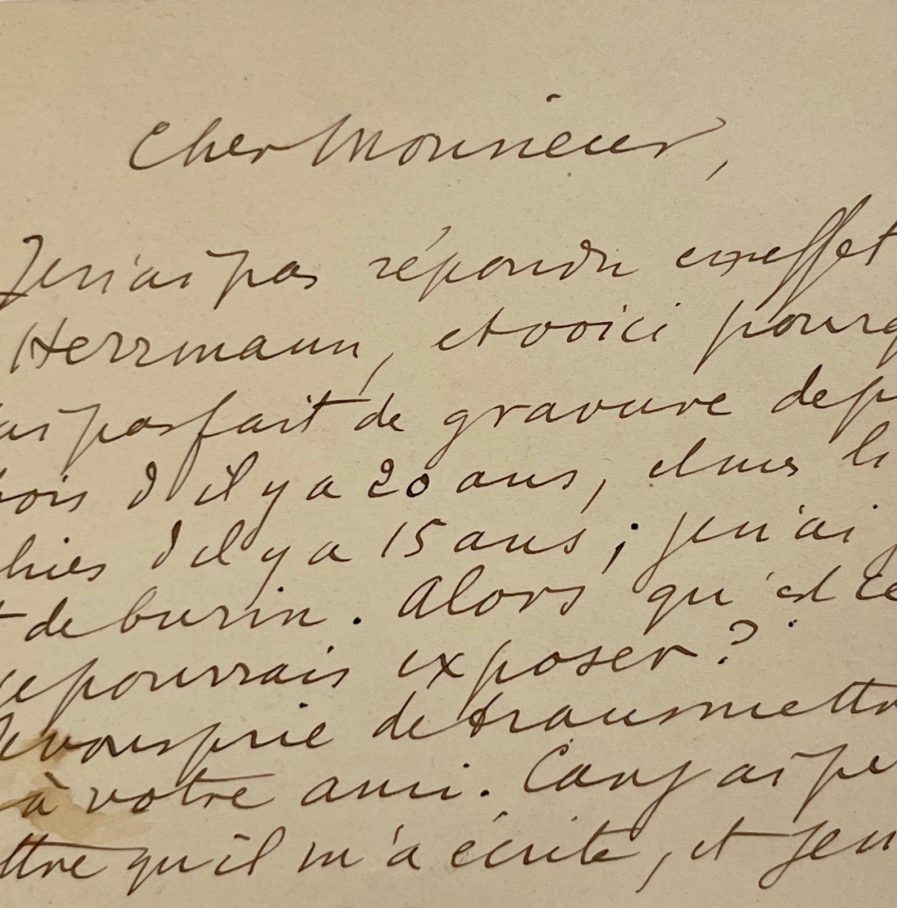 Cher Monsieur,
Je n'ai pas répondu en effet
Herrmann, et voici pourq
ai pas fait de gravure dep
bois d'il y a 20 ans, et mes li
hies d'il y a 15 ans; je n'ai j
t de burin. Alors qu'est ce
je pourrais exposer?
Je vous prie de transmettr
à votre ami. Car j'ai pe
ttre qu'il m'a écrite, et je n